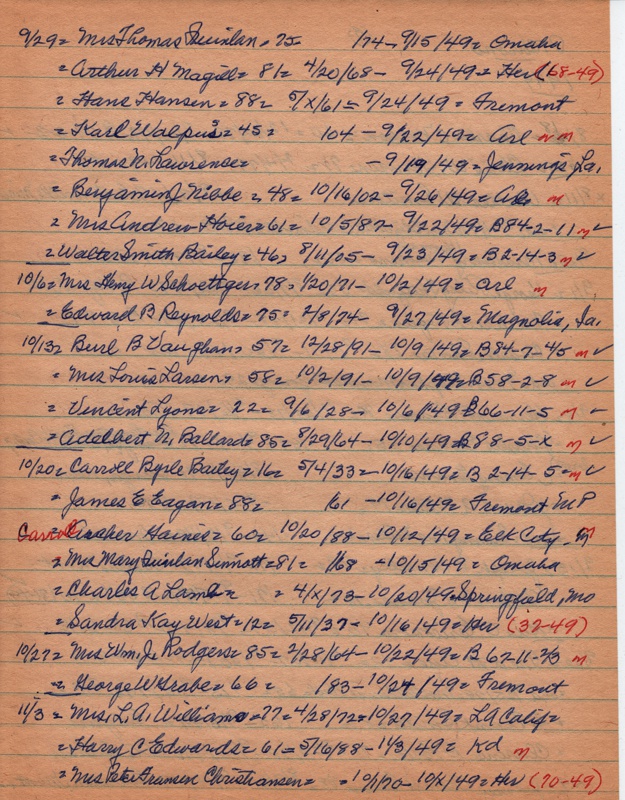 9/29 = Mrs Thomas Quinlan = 75 /74 - 9/15/49 = Omaha
= Arthur H Magill = 81 = 4/20/68 - 9/24/49 = Her (68-49)
= Hans Hansen = 88 = 5/X/61 = 9/24/49 = Fremont
= Karl Walpus = 45 = 104 - 9/22/49 = Arl m
= Thomas N. Lawrence = - 9/19/49 = Jennings, La.
= Benjamin J Nibbe = 48 = 10/16/02 - 9/26/49 = Arl m
= Mrs Andrew Hoier = 61 = 10/5/87 - 9/22/49 = B84-2-11 m ✓
= Walter Smith Bailey = 46 = 8/11/05 - 9/23/49 = B2-14-3 m ✓
10/6 = Mrs Henry W Schoettger = 78 = 1/20/71 - 10/2/49 = Arl m
= Edward B Reynolds = 75 = 2/8/74 - 9/27/49 = Magnolia, Ia.
10/13 = Burl B Vaughan = 57 = 12/28/91 - 10/9/49 = B84-7-4/5 m ✓
= Mrs Louis Larsen = 58 = 10/2/91 - 10/9/49 = B58-2-8 m ✓
= Vincent Lyons = 22 = 9/6/28 - 10/6/49 B66-11-5 m ✓
= Adelbert N. Ballard = 85 = 8/29/64 - 10/10/49 = B88-5-X m ✓
10/20 = Carroll Byrle Bailey = 16 = 5/4/33 - 10/16/49 = B 2-14-5 = m ✓
= James E Eagan = 88 = /61 - 10/16/49 = Fremont
Carroll Haines = 60 = 10/20/88 - 10/12/49 = Elk City m
= Mrs Mary Quinlan Sinnott = 81 = /68 - 10/15/49 = Omaha
= Charles A Lamb = = 4/X/73 - 10/20/49 = Springfield, Mo
= Sandra Kay West = 12 = 5/11/37 - 10/16/49 = Her (37-49)
10/27 = Mrs Wm. J. Rodgers = 85 = 2/28/64 - 10/22/49 = B 62-11-2/3 m
= George W Grabe = 66 = /83 - 10/24/49 = Fremont
11/3 = Mrs. L. A. Williams = 77 = 4/28/72 = 10/27/49 = LA Calif =
= Harry C Edwards = 61 = 5/16/88 - 11/3/49 = Kd m
= Mrs Peter Fransen Christiansen = = 10/1/70 - 10/2/49 = Her (70-49)